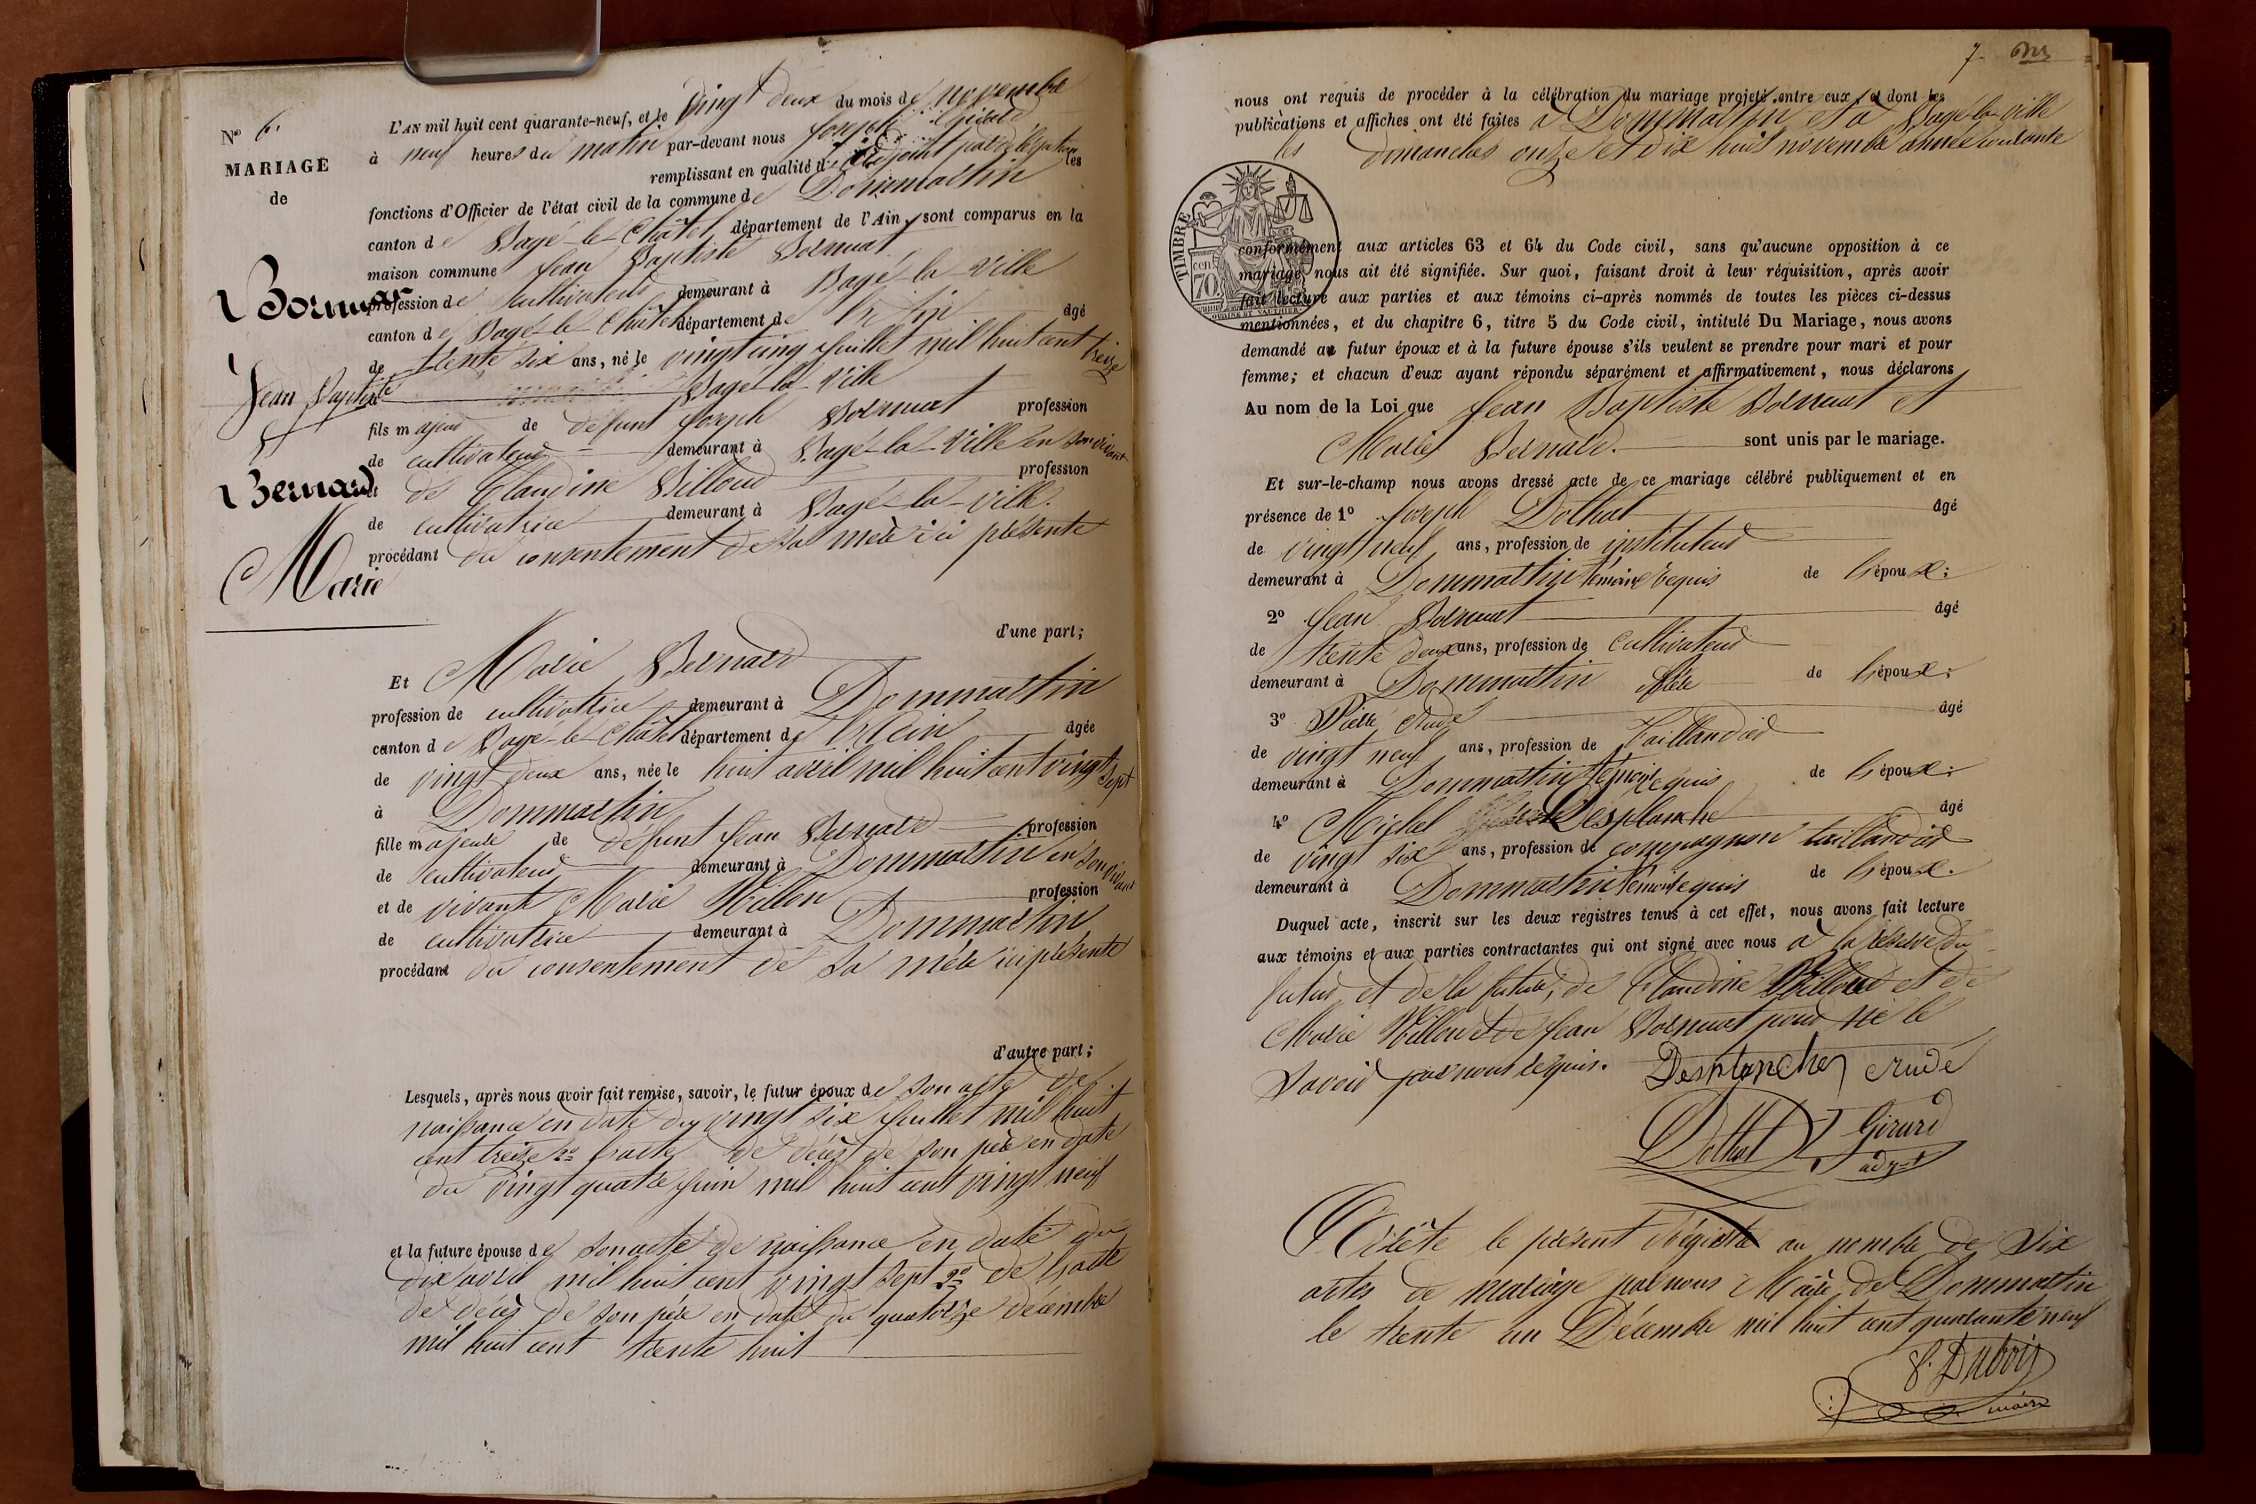 N° 6.
MARIAGE
de
Bornuat
Jean Baptiste
et
Bernard
Marie
L'AN mil huit cent quarante-neuf, et le vingt deux du mois de novembre
à neuf heures du matin par-devant nous Joseph Girard
remplissant en qualité d'adjoint par délégation les
fonctions d'Officier de l'état civil de la commune de Dommartin
canton de Bagé-le-Châtel, département de l'Ain, sont comparus en la
maison commune Jean Baptiste Bornuat
profession de cultivateur demeurant à Bagé-la-Ville
canton de Bagé-le-Châtel département de l'Ain âgé
de trente six ans, né le vingt cinq juillet mil huit cent treize
Bagé-la-Ville
fils majeur de défunt Joseph Bornuat profession
de cultivateur demeurant à Bagé-la-Ville en son vivant
et de Claudine Villoud profession
de cultivatrice demeurant à Bagé-la-Ville.
procédant du consentement de sa mère ici présente
d'une part;
Et Marie Bernard
profession de cultivatrice demeurant à Dommartin
canton de Bagé-le-Châtel département de l'Ain âgée
de vingt deux ans, née le huit avril mil huit cent vingt sept
à Dommartin
fille majeure de défunt Jean Bernard profession
de cultivateur demeurant à Dommartin en son vivant
et de vivante Marie Millon profession
de cultivatrice demeurant à Dommartin
procédant du consentement de sa mère ici présente
d'autre part;
Lesquels, après nous avoir fait remise, savoir, le futur époux de son acte de
naissance en date du vingt six juillet mil huit
cent treize 2° l'acte de décès de son père en date
du vingt quatre juin mil huit cent vingt neuf
et la future épouse de son acte de naissance en date du
dix avril mil huit cent vingt sept 2° de l'acte
de décès de son père en date du quatorze décembre
mil huit cent trente huit
7.
nous ont requis de procéder à la célébration du mariage projeté entre eux, et dont les
publications et affiches ont été faites à Dommartin et à Bagé-la-Ville
les dimanches onze et dix huit novembre année courante
TIMBRE
cent
70
conformément aux articles 63 et 64 du Code civil, sans qu'aucune opposition à ce
mariage nous ait été signifiée. Sur quoi, faisant droit à leur réquisition, après avoir
fait lecture aux parties et aux témoins ci-après nommés de toutes les pièces ci-dessus
mentionnées, et du chapitre 6, titre 5 du Code civil, intitulé Du Mariage, nous avons
demandé au futur époux et à la future épouse s'ils veulent se prendre pour mari et pour
femme; et chacun d'eux ayant répondu séparément et affirmativement, nous déclarons
Au nom de la Loi que Jean Baptiste Bornuat et
Marie Bernard. sont unis par le mariage.
Et sur-le-champ nous avons dressé acte de ce mariage célébré publiquement et en
présence de 1° Joseph Dothat âgé
de vingt neuf ans, profession de instituteur
demeurant à Dommartin témoin requis de l'époux;
2° Jean Bornuat âgé
de trente deux ans, profession de cultivateur
demeurant à Dommartin frère de l'époux;
3° Pierre Rude âgé
de vingt neuf ans, profession de Taillandier
demeurant à Dommartin témoin requis de l'époux;
4° Michel Desplanche âgé
de vingt six ans, profession de compagnon taillandier
demeurant à Dommartin témoin requis de l'époux.
Duquel acte, inscrit sur les deux registres tenus à cet effet, nous avons fait lecture
aux témoins et aux parties contractantes qui ont signé avec nous à la réserve du
futur et de la future, de Claudine Villoud et de
Marie Millon et de Jean Bornuat pour ne le
savoir par nous requis. Desplanche Rude
Dothat Girard
adj-t
Arrêté le présent Régistre au nombre de six
actes de mariage par nous Maire de Dommartin
le trente un Décembre mil huit cent quarante neuf
Dubois
maire